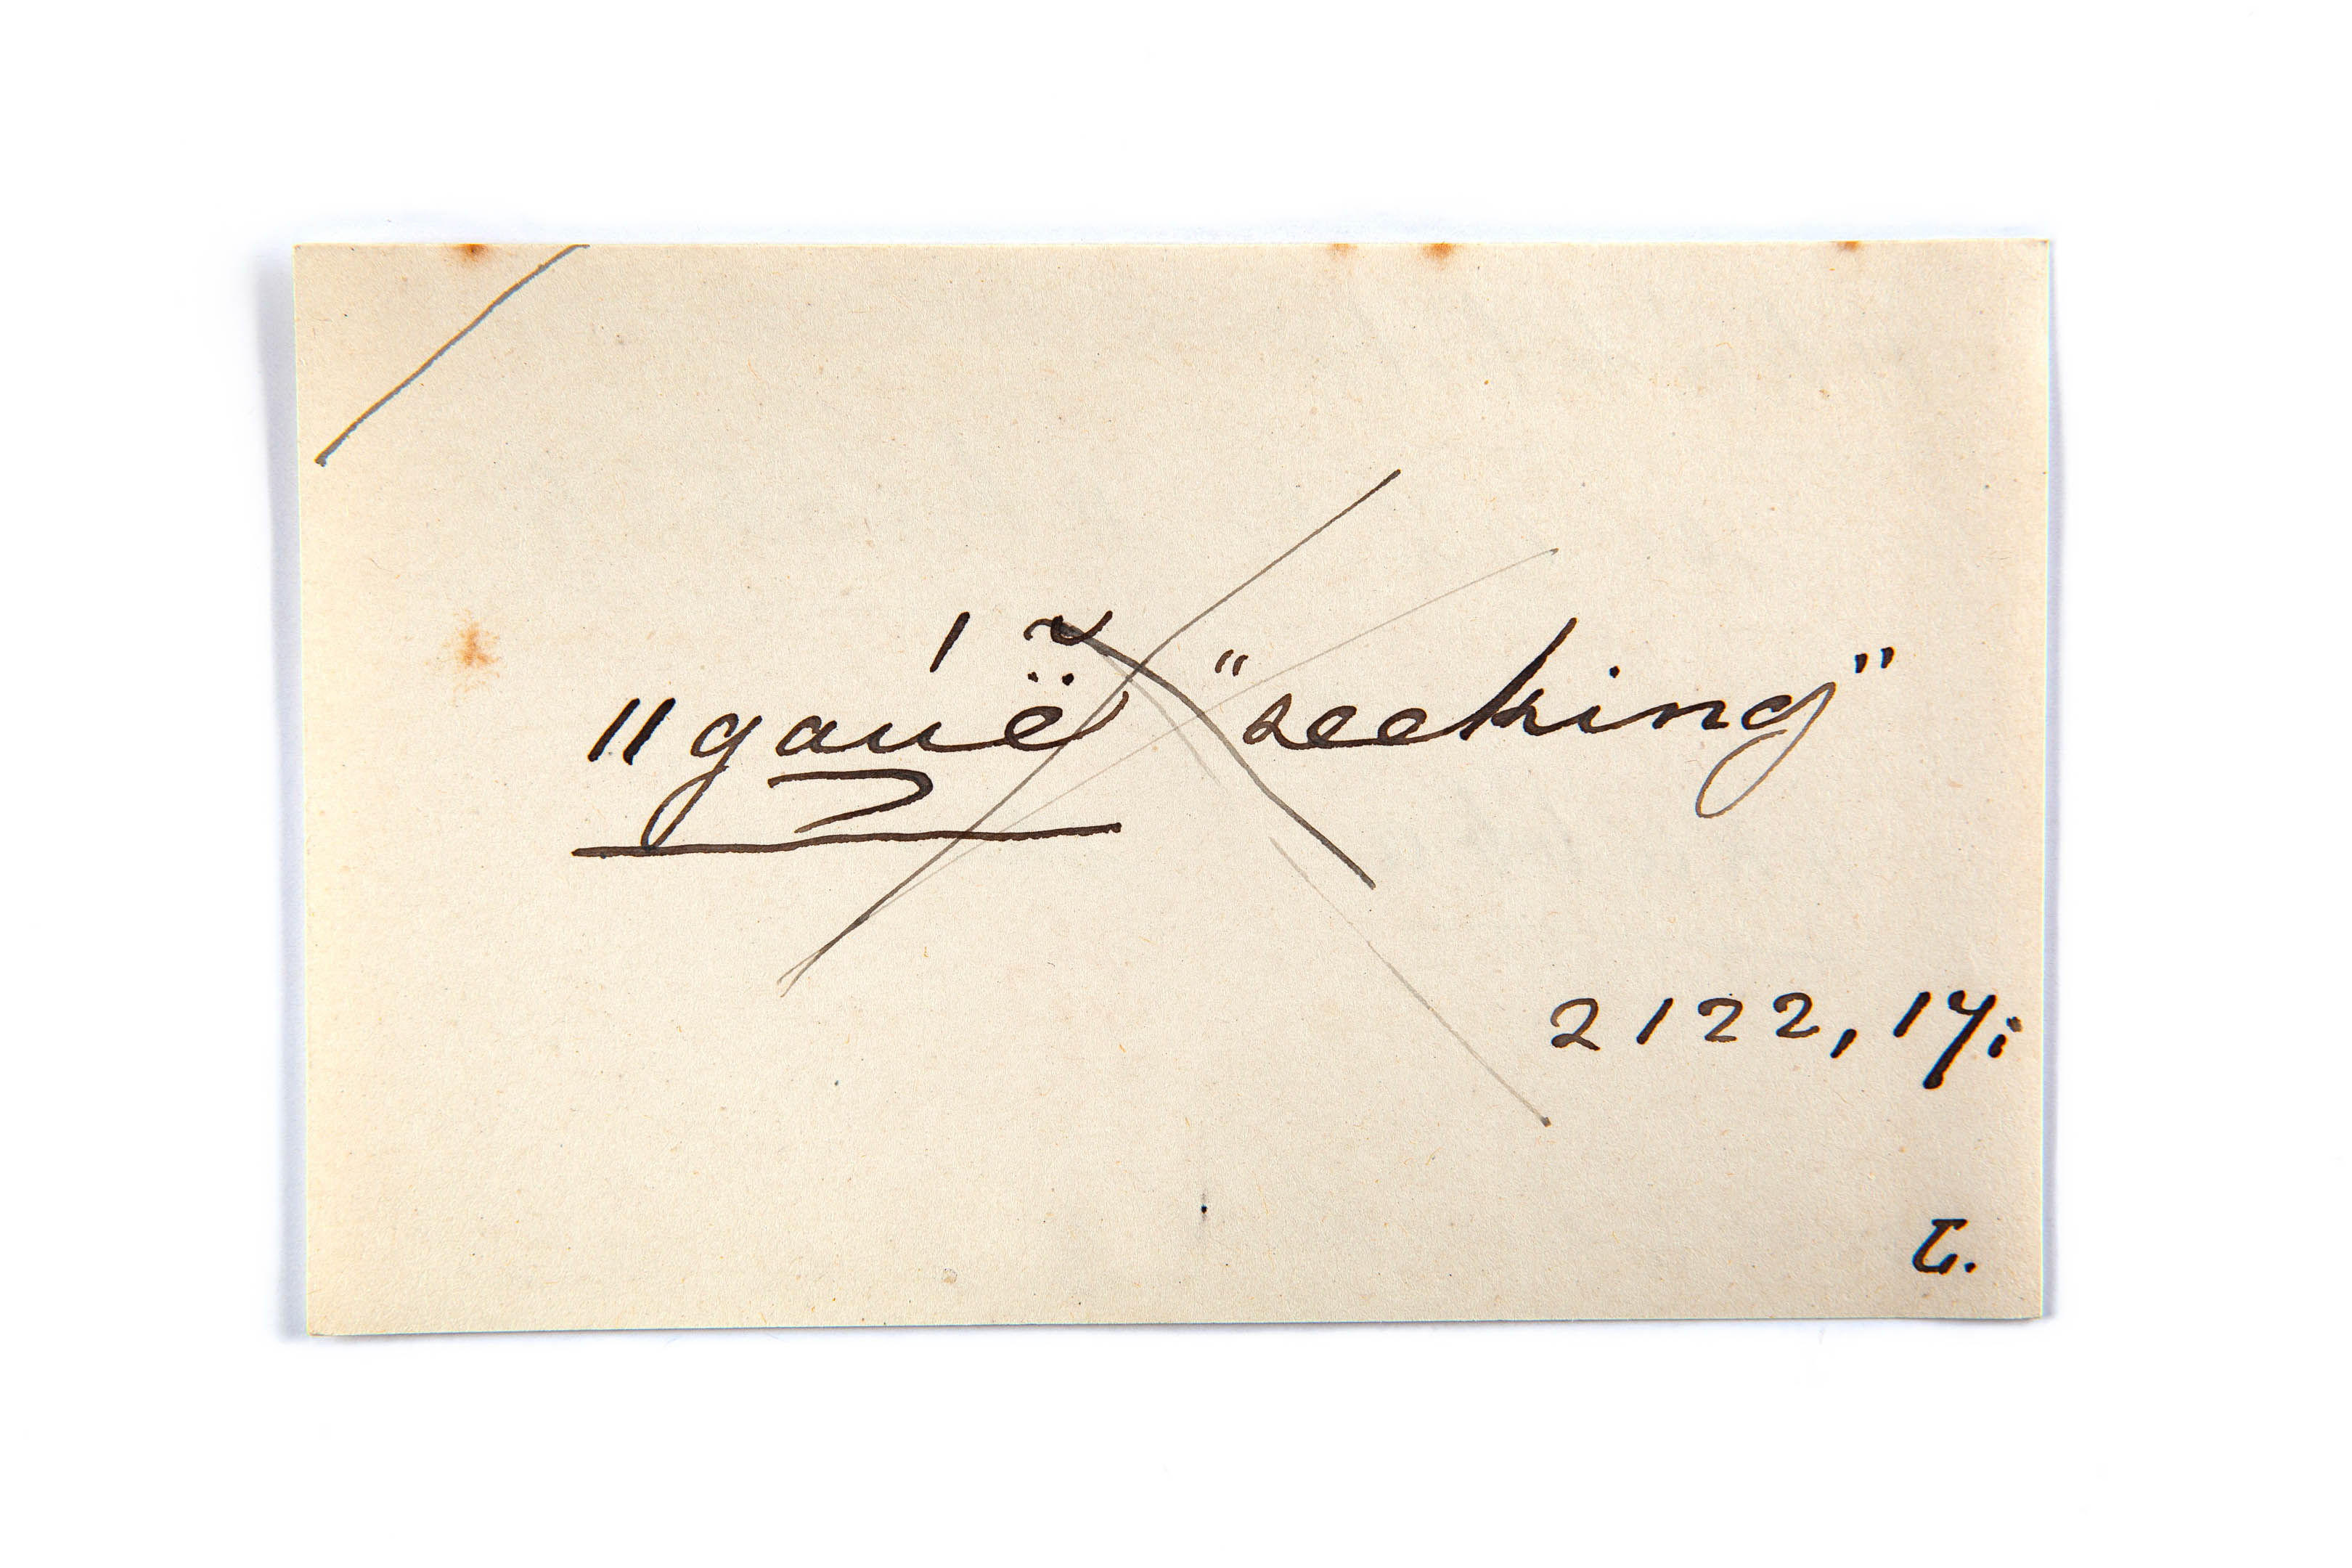 ǁgaúë̃ "seeking"
2122, 17;
L.